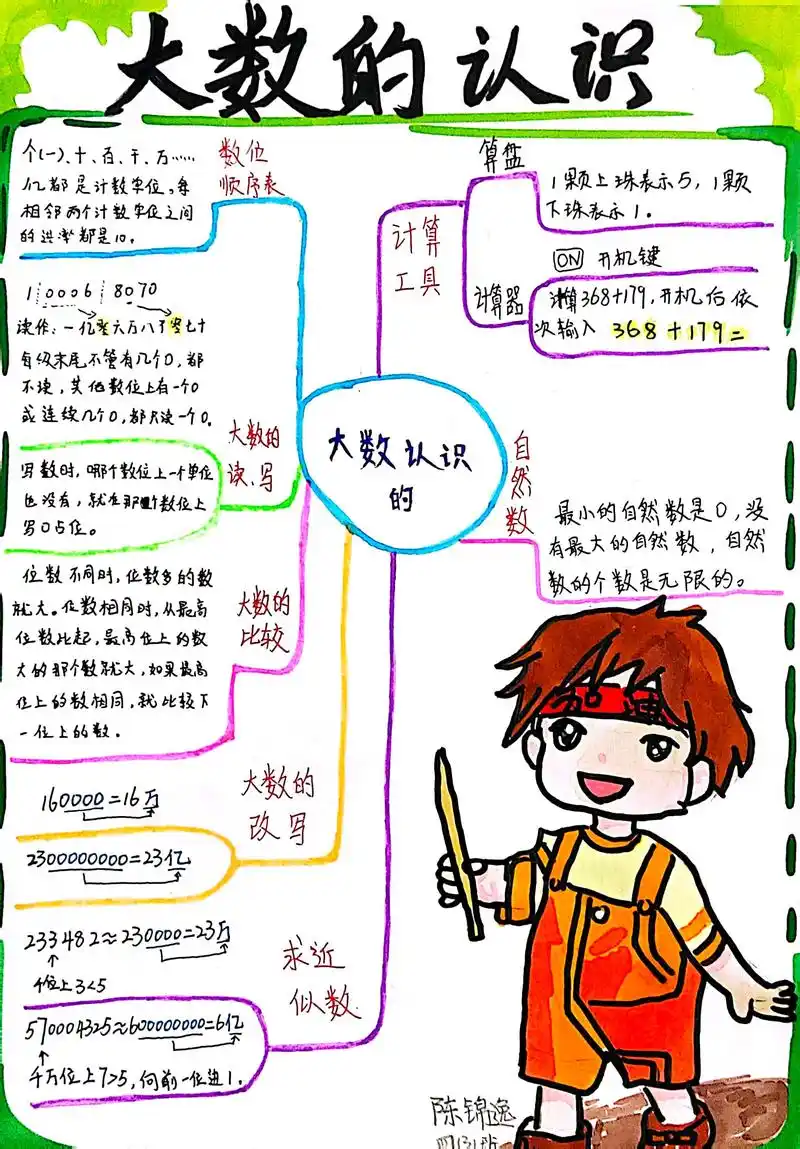 大数的认识
个(一)、十、百、千、万……
亿都是计数单位。每
相邻两个计数单位之间
的进率都是10。
数位
顺序表
1 0006 8070
读作:一亿零六万八千零七十
每级末尾不管有几个0,都
不读,其他数位上有一个0
或连续几个0,都只读一个0。
大数的
读、写
写数时,哪个数位上一个单位
也没有,就在那个数位上
写0占位。
位数不同时,位数多的数
就大。位数相同时,从最高
位数比起,最高位上的数
大的那个数就大,如果最高
位上的数相同,就比较下
一位上的数。
大数的
比较
160000=16万
2300000000=23亿
大数的
改写
233482≈230000=23万
千位上3<5
570004325≈600000000=6亿
千万位上7>5,向前一位进1.
求近
似数
大数认识
的
计算
工具
算盘
1颗上珠表示5,1颗
下珠表示1.
计算器
ON 开机键
计算368+179,开机后依
次输入 368+179=
自然数
最小的自然数是0,没
有最大的自然数,自然
数的个数是无限的。
陈锦逸
四(3)班